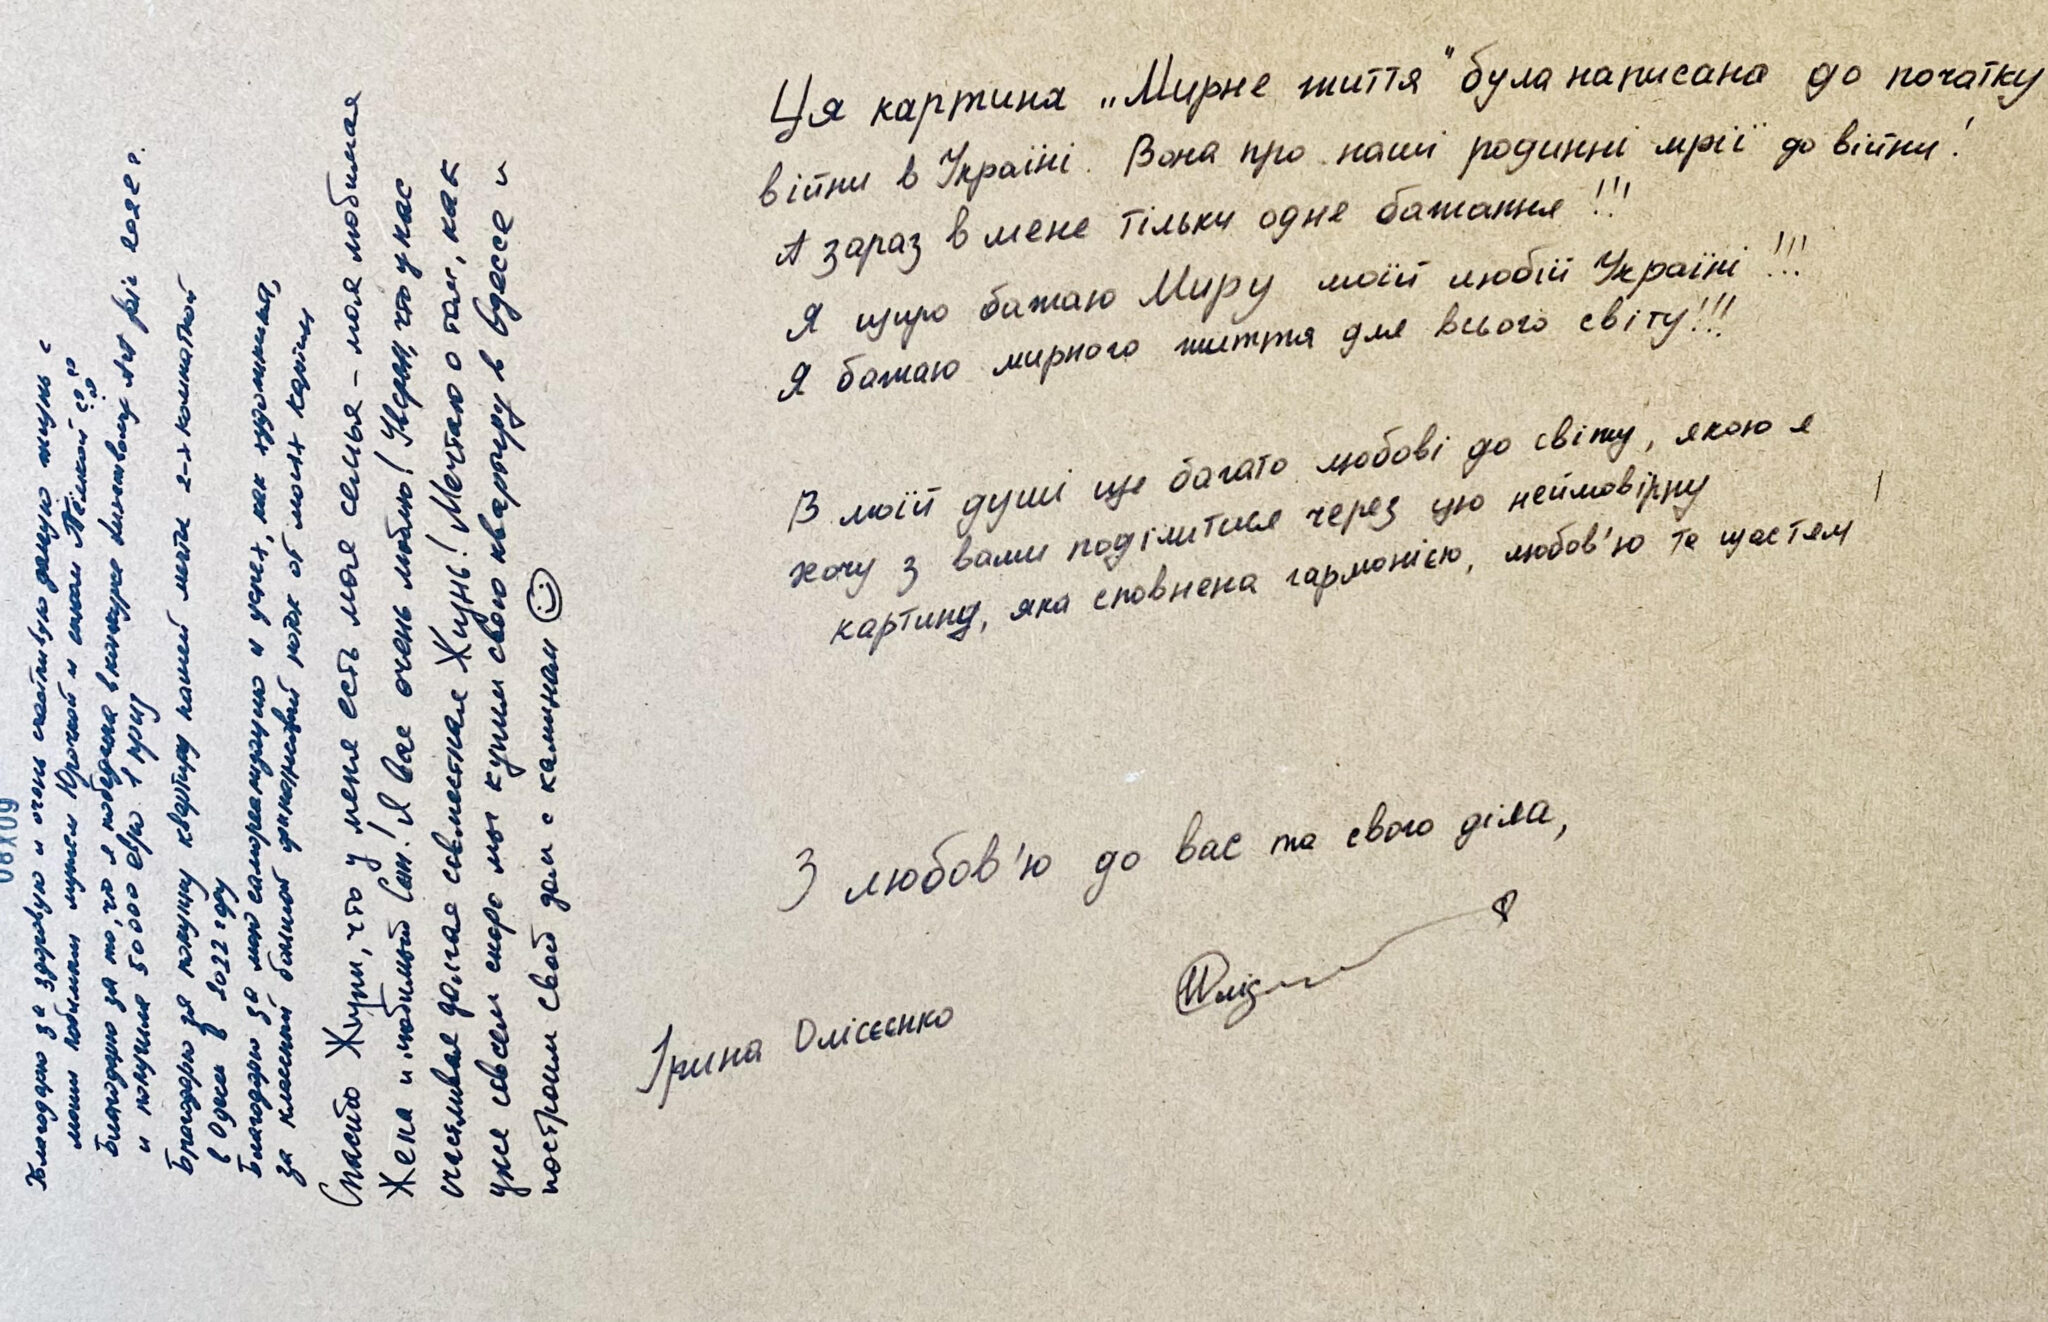 Ця картина „Мирне життя" була написана до початку
війни в Україні. Вона про наші родинні мрії до війни!
А зараз в мене тільки одне бажання!!!
Я щиро бажаю Миру моїй любій Україні!!!
Я бажаю мирного життя для всього світу!!!
В моїй душі ще багато любові до світу, якою я
хочу з вами поділитися через цю неймовірну
картину, яка сповнена гармонією, любов'ю та щастям
З любов'ю до вас та свого діла,
Ірина Олісєєнко
Благодарю за здоровую и очень счастливую жизнь с
моим любимым мужем и сыном
Благодарю за то, что я победила в конкурсе 2022 г.
и получила 50000 евро 1 приз
Благодарю за покупку квартиры нашей мечты 2-х комнатной
в Одессе в 2022 году
Благодарю за мою самореализацию и успех, как художника,
за классный большой финансовый поток от моих картин
Спасибо Жизни, что у меня есть моя семья - моя любимая
Жена и любимый Сын! Я Вас очень люблю! Уверен, что у нас
счастливая долгая совместная Жизнь! Мечтаю о том, как
уже совсем скоро мы купим свою квартиру в Одессе и
построим свой дом с камином